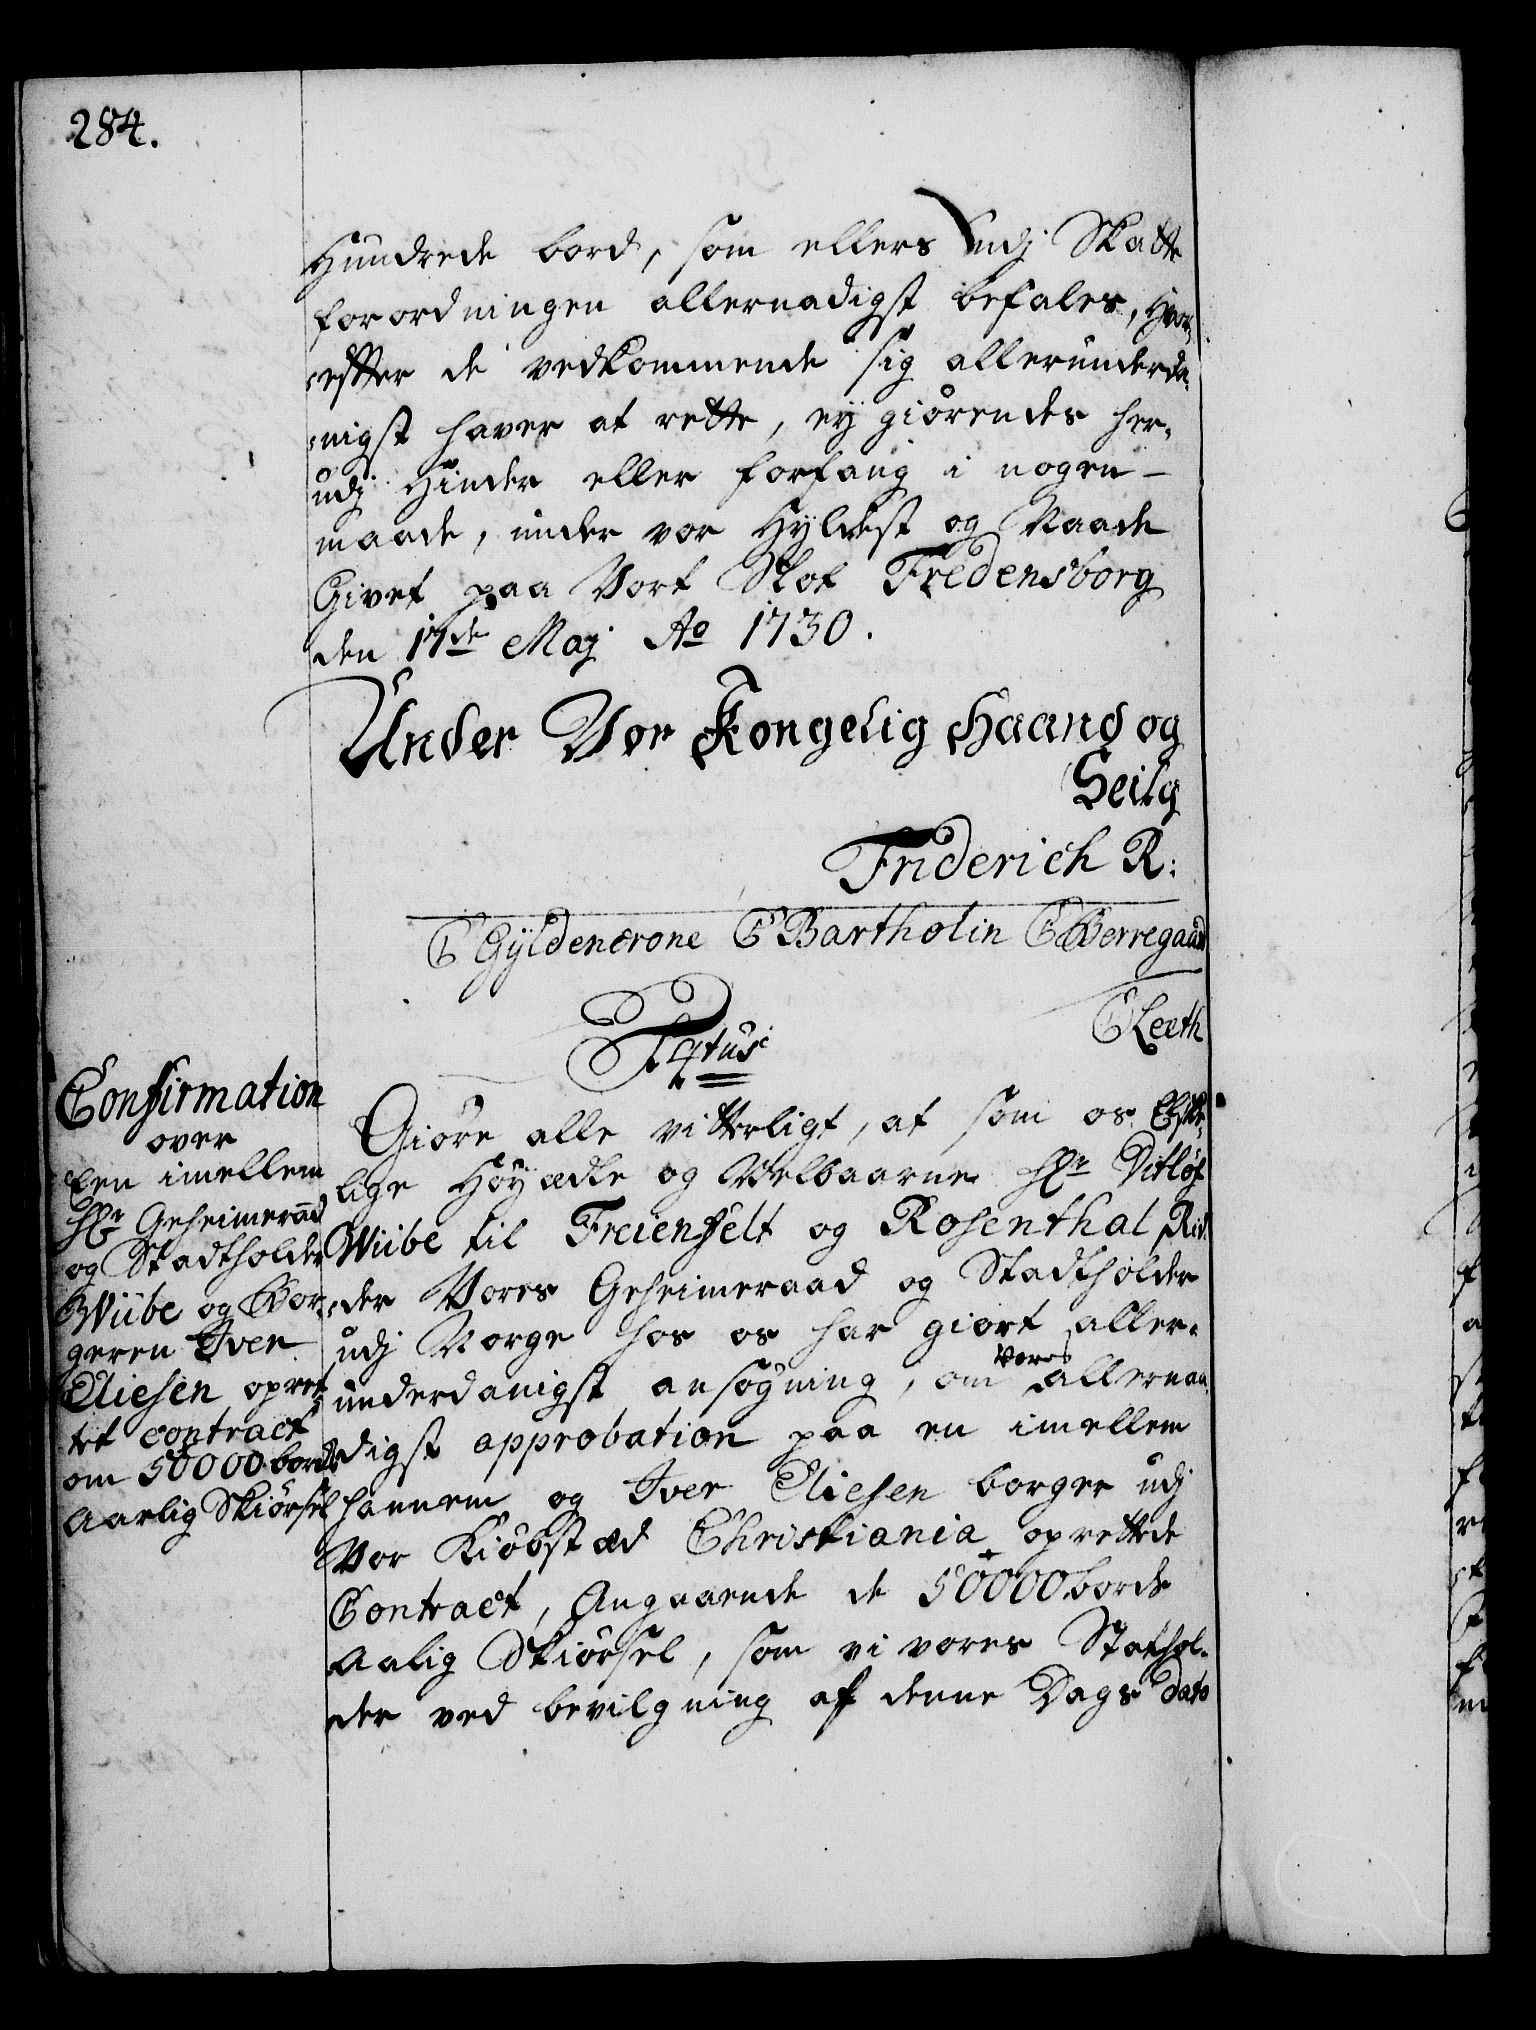 284.
Hundrede bord, som ellers udj Skatte
forordningen allernadigst befales, Hvor¬
¬efter de vedkommende sig allerunderda¬
¬nigst haver at rette, eÿ giørendes her¬
udj Hinder eller forfang i nogen
maade, under vor Hyldest og Naade
Givet paa Vort Slot Fredensborg
den 17de Maj Ao 1730.
Under Vor Kongelig Haand og
Seilg
Friderich R:
C Gÿldencrone C Bartholin C Berregaard
C Leeth
Confirmation
over
Een imellem
Hr Geheimeraad
og Stadtholder
Wiibe og Bor¬
geren Iver
Eliesen opret¬
tet contract
om 50000 borde
aarlig Skiørsel
Titus:
Giøre alle vitterligt, at som os Elske¬
lige Høÿ ædle og Welbaarne Hr Ditløf
Wiibe til Freienfelt og Rosenthal Rid¬
¬der Vores Geheimeraad og Stadtholder
udj Norge hos os har giort aller¬
underdanigst ansøgning, om Vores allernaa¬
digst approbation paa en imellem
hannem og Iver Eliesen borger udj
Vor Kiøbstæd Christiania oprettede
Contract, Angaaende de 50000 borde
Aalig Skiørsel, som vi vores Stathol¬
der ved bevilgning af denne Dags Dato